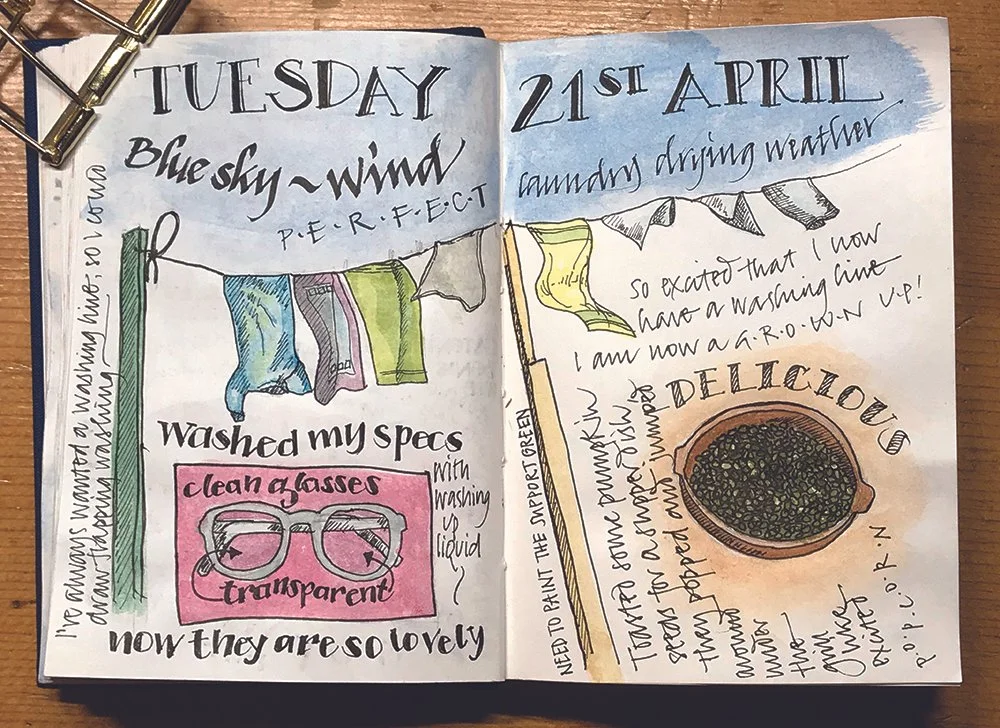 TUESDAY
Blue sky ~ wind
P·E·R·F·E·C·T
I've always wanted a washing line, so I could
draw flapping washing
Washed my specs
clean glasses
transparent
with
washing
up
liquid
now they are so lovely
21ST APRIL
laundry drying weather
so excited that I now
have a washing line
I am now a G·R·O·W·N U·P!
NEED TO PAINT THE SUPPORT GREEN
DELICIOUS
Toasted some pumpkin
seeds for a supper dish
they popped and jumped
around
under
the
grill
like
excited
P·O·P·C·O·R·N